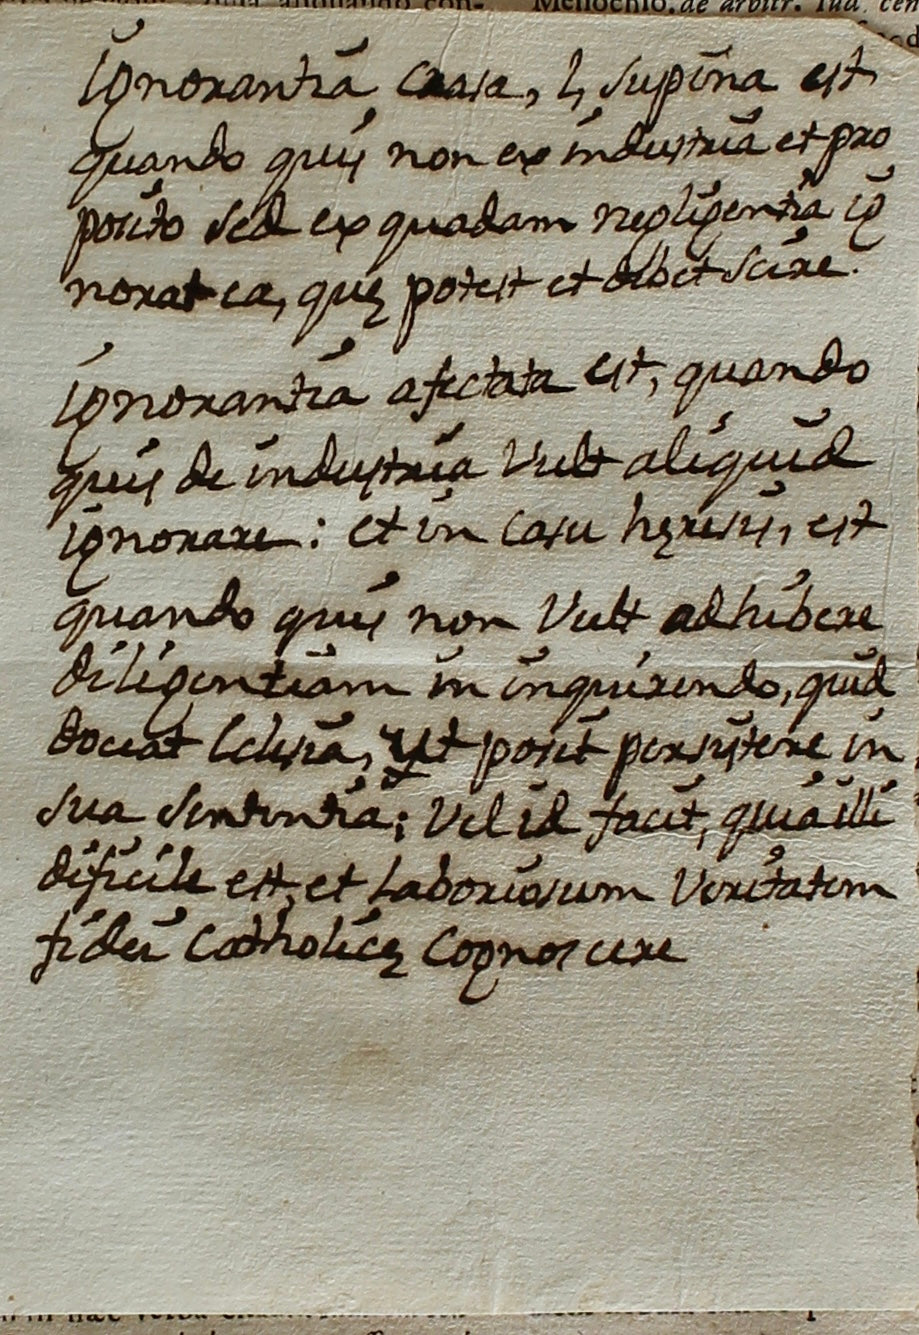 de arbitr. Iud. cen
Ignorantia crasa, l, supina est
quando quis non ex industria et pro
posito sed ex quadam negligentia ig
norat ea, quę potest et debet scire.
Ignorantia afectata est, quando
quis de industria vult aliquid
ignorare: et in casu hęresis, est
quando quis non vult adhibere
diligentiam in inquirendo, quid
doceat Eclesia, Vt posit persistere in
sua sententia; vel id facit, quia illi
dificile est, et laboriosum veritatem
fidei Catholicę cognoscere